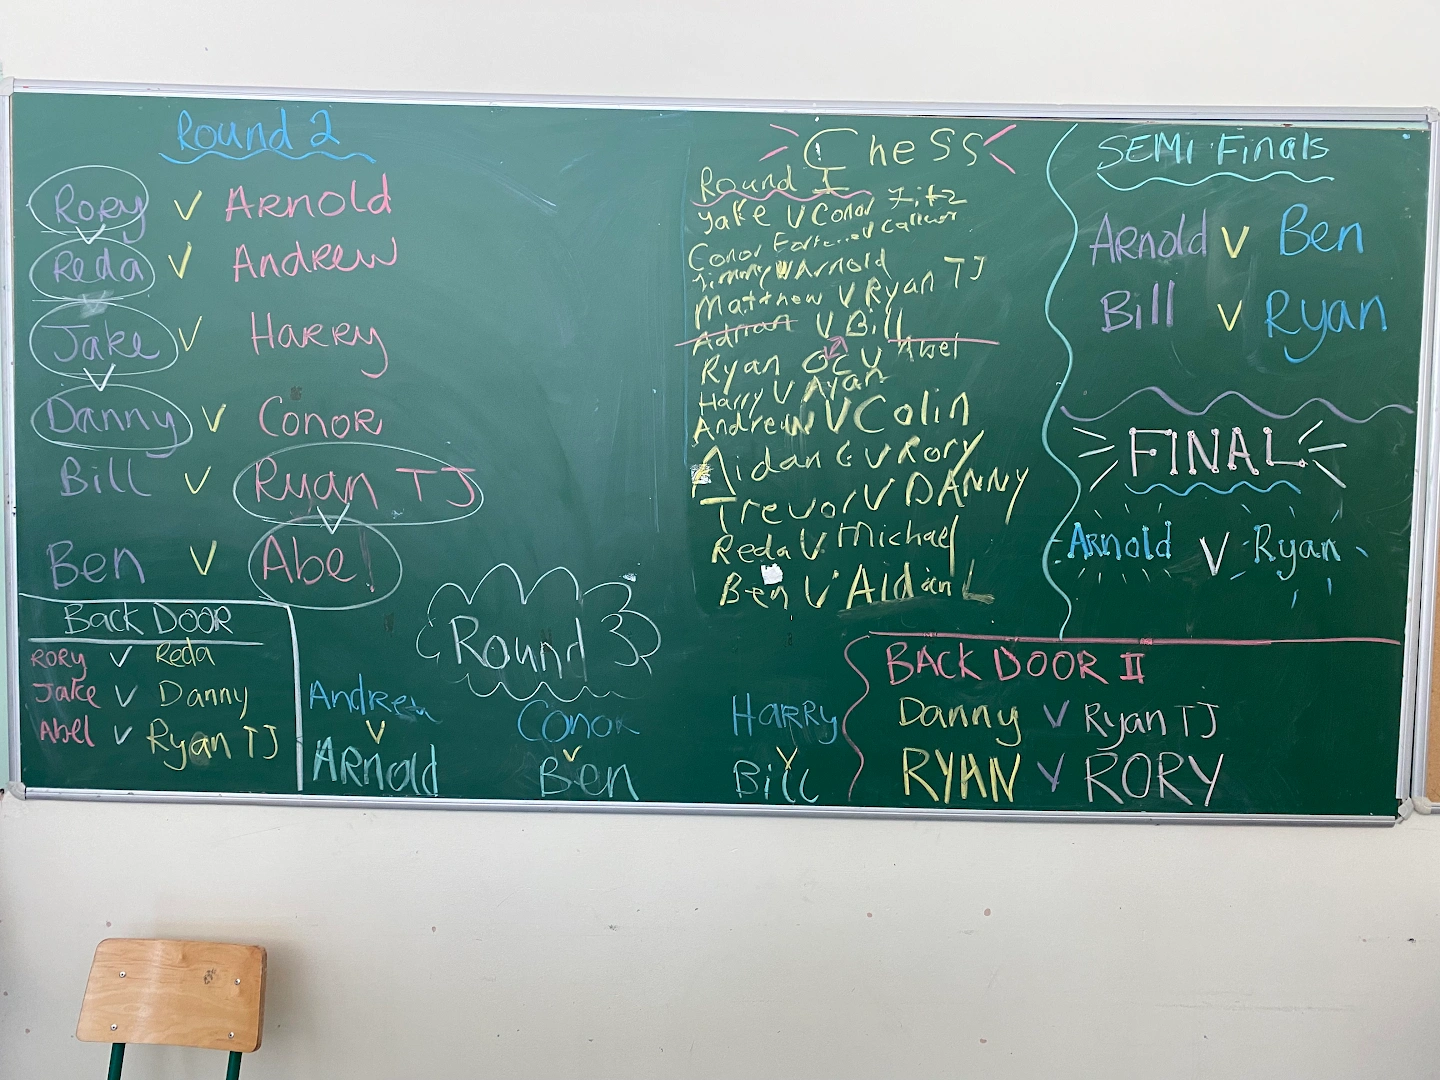 Round 2
Rory V Arnold
Reda V Andrew
Jake V Harry
Danny V Conor
Bill V Ryan TJ
Ben V Abel
Back Door
Rory V Reda
Jake V Danny
Abel V Ryan TJ
Round 3
Andrew
V
Arnold
Conor
V
Ben
Harry
V
Bill
Chess
Round I
Jake V Conor Fitz
Conor
Jimmy V Arnold
Matthew V Ryan TJ
Adrian V Bill
Ryan OC V Abel
Harry V Ayan
Andrew V Colin
Aidan G V Rory
Trevor V DANNY
Reda V Michael
Ben V Aidan L
SEMI Finals
Arnold V Ben
Bill V Ryan
FINAL
Arnold V Ryan
BACK DOOR II
Danny V Ryan TJ
RYAN V RORY